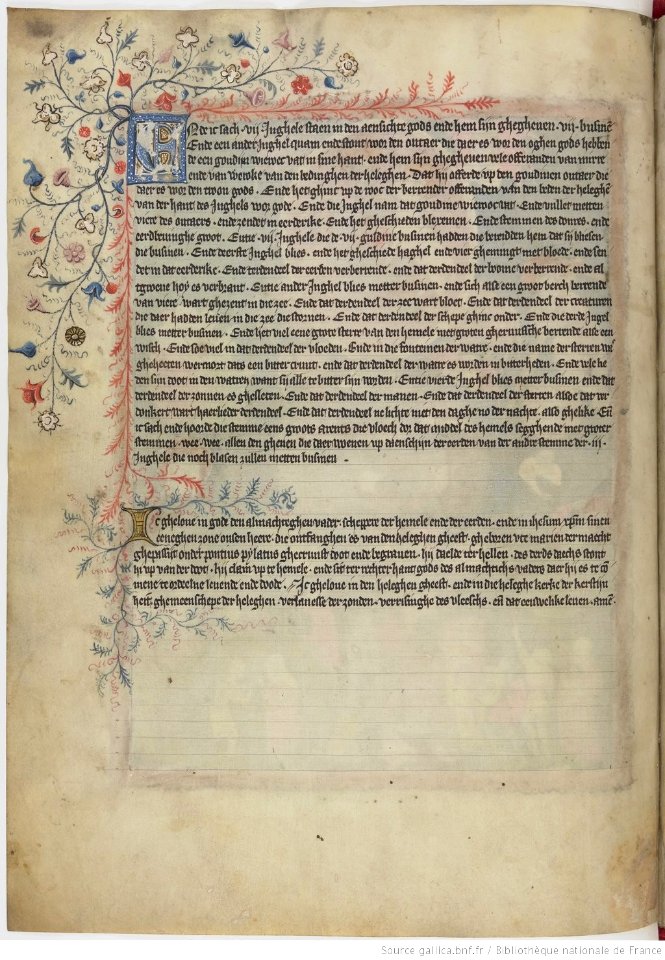 Ende ic sach · vij · Inghele staen in den aensichte gods ende hem sijn ghegheuen · vij · businē
Ende een ander Inghel quam ende stont voor den outaer die daer es voor den oghen gods hebben
de een goudijn wieroec vat in sine hant · ende hem sijn ghegheuen vele offeranden van mirre
ende van wieroke van den bedinghen der heleghen · Dat hij offerde up den goudinen outaer die
daer es voor den troon gods · Ende het ghinc up de rooc der berrender offeranden van den beden der heleghē
van der hant des Inghels voor gode · Ende die Inghel nam dat goudine wieroec vat · Ende vullet metten
viere des outaers · ende zendet in eerderike · Ende het ghescieden blexemen · Ende stemmen des donres · ende
eerdbeuinghe groot · Entie · vij · Inghele die de · vij · businen hadden die bereedden hem dat sij bliesen
die businen · Ende deerste Inghel blies · ende het ghesciede haghel ende vier ghemingt met bloede · ende sen
det in dat eerderike · Ende terdendeel der eerden verberrende · ende dat derdendeel der bome verberrende · ende al
tgroene hoy es verbrant · Entie ander Inghel blies metter businen · ende sich alse een groot berch berrende
van viere wart ghezent in die zee · Ende dat derdendeel der zee wart bloet · Ende dat derdendeel der creaturen
die daer hadden leuen in die zee die storuen · Ende dat derdendeel der schepe ghinc onder · Ende die derde Ingel
blies metter businen · Ende het viel eene grote sterre van den hemele met groten gheruusche berrende alse een
wisch · Ende soe viel in dat derdendeel der vloeden · Ende in die fonteinen der watre · ende die name der sterren was
gheheeten wermoet dats een bitter cruut · ende dat derdendeel der watre es worden in bitterheden · Ende vele lie
den sijn doot in den watren want sij alle te bitter sijn worden · Entie vierde Inghel blies metter businen ende dat
derdendeel der zonnen es ghesleten · Ende dat derdendeel der manen · Ende dat derdendeel der sterren alsoe dat ver
donkert wart haerlieder derdendeel · Ende dat derdendeel ne lichte met den daghe no der nachte · also ghelike · Eñ
ic sach ende hoorde die stemme eens groots arents die vloech dor dat middel des hemels segghende met groter
stemmen · wee · wee · allen den ghenen die daer wonen up daenschijn der eerden van der andre stemme der · iij ·
Inghele die noch blasen zullen metten businen ·
Ic gheloue in gode den almachteghen vader · scheppere der hemele ende der eerden · ende in ihesum xp̄m sinen
eeneghen zone onsen heere · die ontfanghen es van den heleghen gheest · gheboren vte marien der maecht
ghepassijt onder pontius pylatus ghecruust doot ende begrauen · hij daelde ter hellen · des derds daechs stont
hi up van der doot · hij clam up te hemele · ende sit ter rechter hant gods des almachtichs vaders daer hij es te co
mene te ordeelne leuende ende doode · Ic gheloue in den heleghen gheest · ende in die heleghe kerke der kerstijn
heit · ghemeenschepe der heleghen · verlanesse der zonden · verrisinghe des vleeschs · eñ dat eeuwelike leuen · amē ·
Source gallica.bnf.fr / Bibliothèque nationale de France